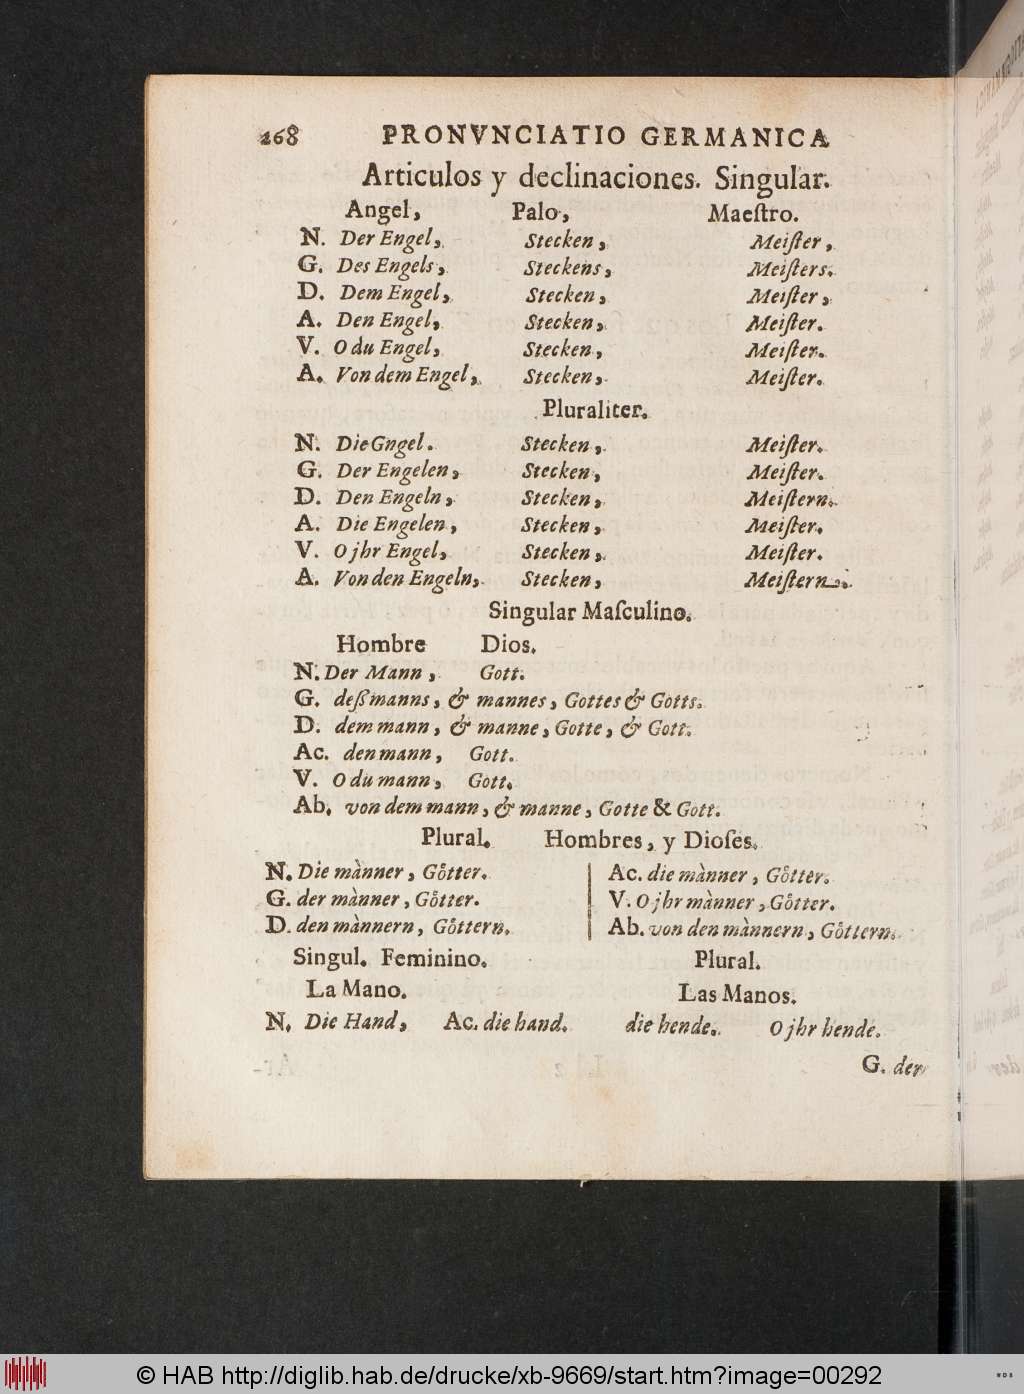 268 PRONVNCIATIO GERMANICA
Articulos y declinaciones. Singular.
Angel, Palo, Maeſtro.
N. Der Engel, Stecken, Meiſter,
G. Des Engels, Steckens, Meiſters.
D. Dem Engel, Stecken, Meiſter,
A. Den Engel, Stecken, Meiſter.
V. O du Engel, Stecken, Meiſter.
A. Von dem Engel, Stecken, Meiſter.
Pluraliter.
N. Die Gngel. Stecken, Meiſter.
G. Der Engelen, Stecken, Meiſter.
D. Den Engeln, Stecken, Meiſtern.
A. Die Engelen, Stecken, Meiſter.
V. O jhr Engel, Stecken, Meiſter.
A. Von den Engeln, Stecken, Meiſtern.
Singular Maſculino.
Hombre Dios.
N. Der Mann, Gott.
G. deß manns, & mannes, Gottes & Gotts.
D. dem mann, & manne, Gotte, & Gott.
Ac. den mann, Gott.
V. O du mann, Gott.
Ab. von dem mann, & manne, Gotte & Gott.
Plural. Hombres, y Dioſes.
N. Die mànner, Goͤtter. Ac. die mànner, Goͤtter.
G. der mànner, Goͤtter. V. O jhr mànner, Goͤtter.
D. den mànnern, Goͤttern. Ab. von den mànnern, Goͤttern.
Singul. Feminino. Plural.
La Mano. Las Manos.
N. Die Hand, Ac. die hand. die hende. O jhr hende.
G. der
© HAB http://diglib.hab.de/drucke/xb-9669/start.htm?image=00292